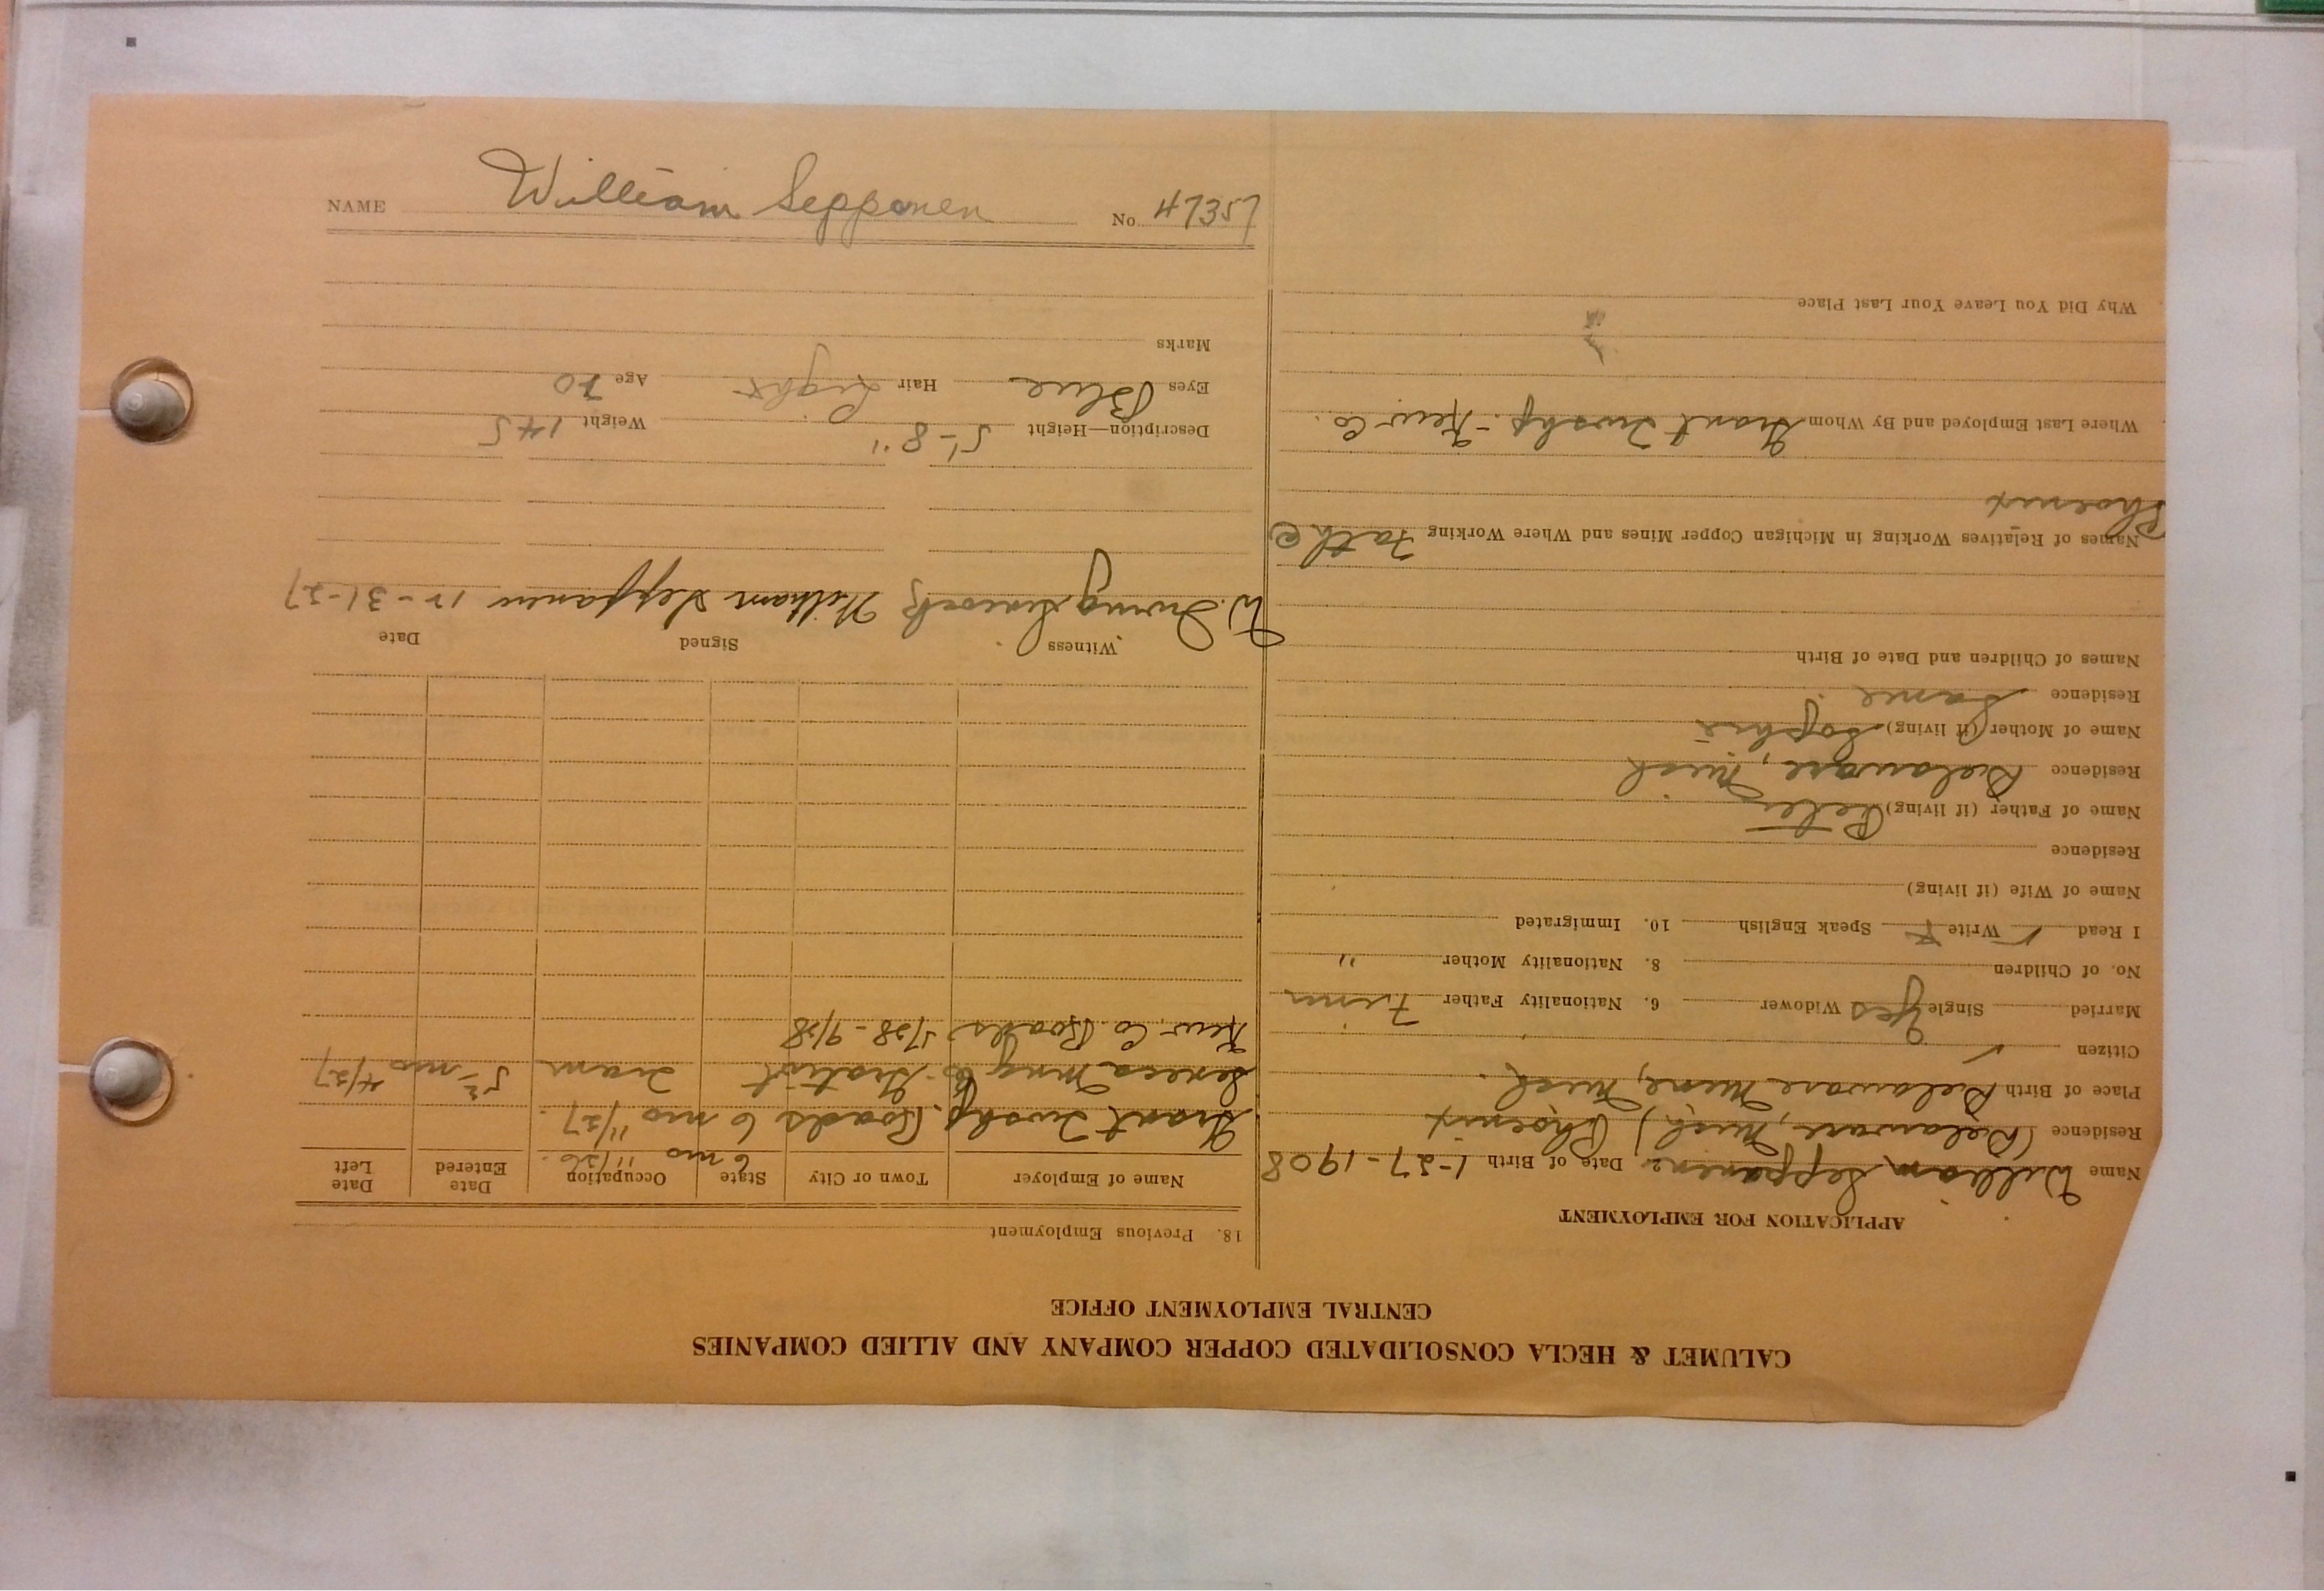 CALUMET & HECLA CONSOLIDATED COPPER COMPANY AND ALLIED COMPANIES
CENTRAL EMPLOYMENT OFFICE
APPLICATION FOR EMPLOYMENT
Name William Seppanen Date of Birth 1-27-1908
Residence (Delaware, Mich) Phoenix
Place of Birth Delaware Mine, Mich.
Citizen ✓
Married Single Yes Widower 6. Nationality Father Finn
No. of Children 8. Nationality Mother "
I Read ✓ Write Speak English 10. Immigrated
Name of Wife (if living)
Residence
Name of Father (if living) Peter
Residence Delaware, Mich
Name of Mother (if living) Sophie
Residence Same
Names of Children and Date of Birth
Names of Relatives Working in Michigan Copper Mines and Where Working Father
Phoenix
Where Last Employed and By Whom Grant Twshp. - Kew. Co.
Why Did You Leave Your Last Place
18. Previous Employment
Name of Employer Town or City State Occupation Date Entered Date Left
6 mo 11/26.
Grant Twshp. Roads 6 mo 11/27.
Seneca Mng Co. Gratiot Tram 5 mo 4/27
Kew. Co. Roads 5/28 - 9/28
Witness Signed Date
W. Irving William Seppanen 12-31-27
Description—Height 5'-8" Weight 145
Eyes Blue Hair Light Age 20
Marks
NAME William Sepponen No. 47357